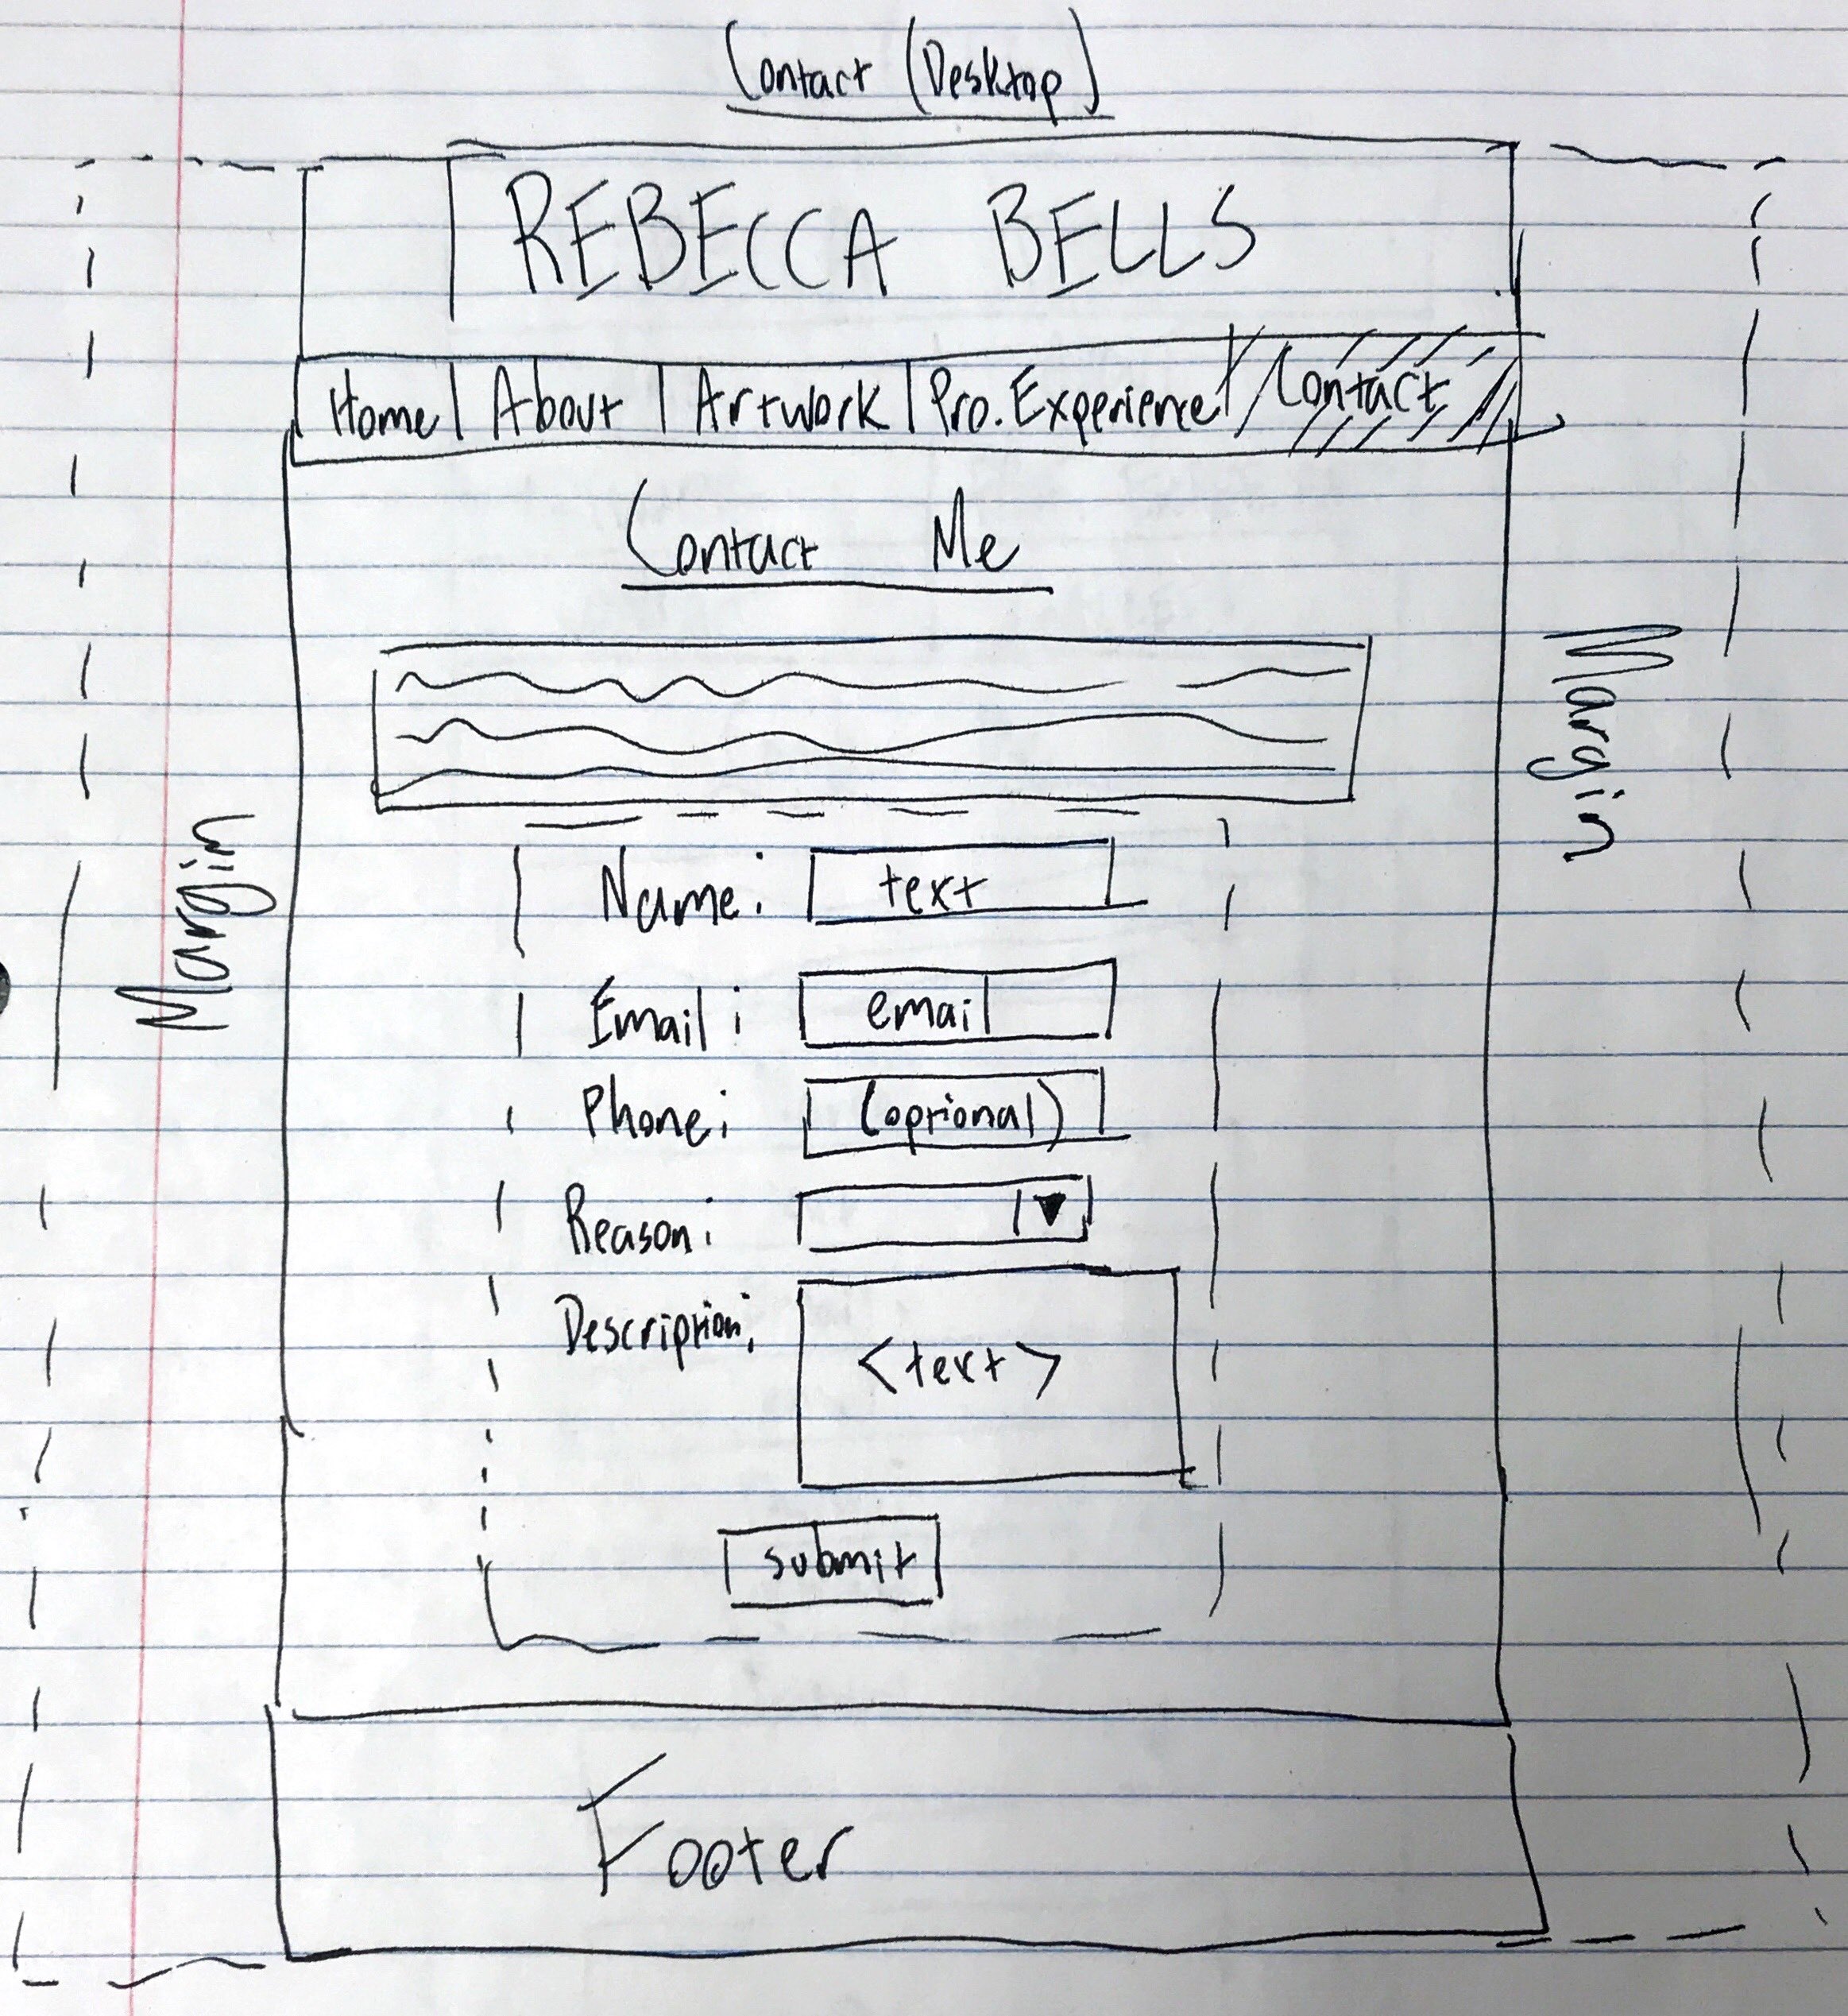 Contact (Desktop)
REBECCA BELLS
Home | About | Artwork | Pro. Experience | Contact
Contact Me
Margin
Margin
Name: text
Email: email
Phone: (optional)
Reason: ▼
Description: <text>
submit
Footer